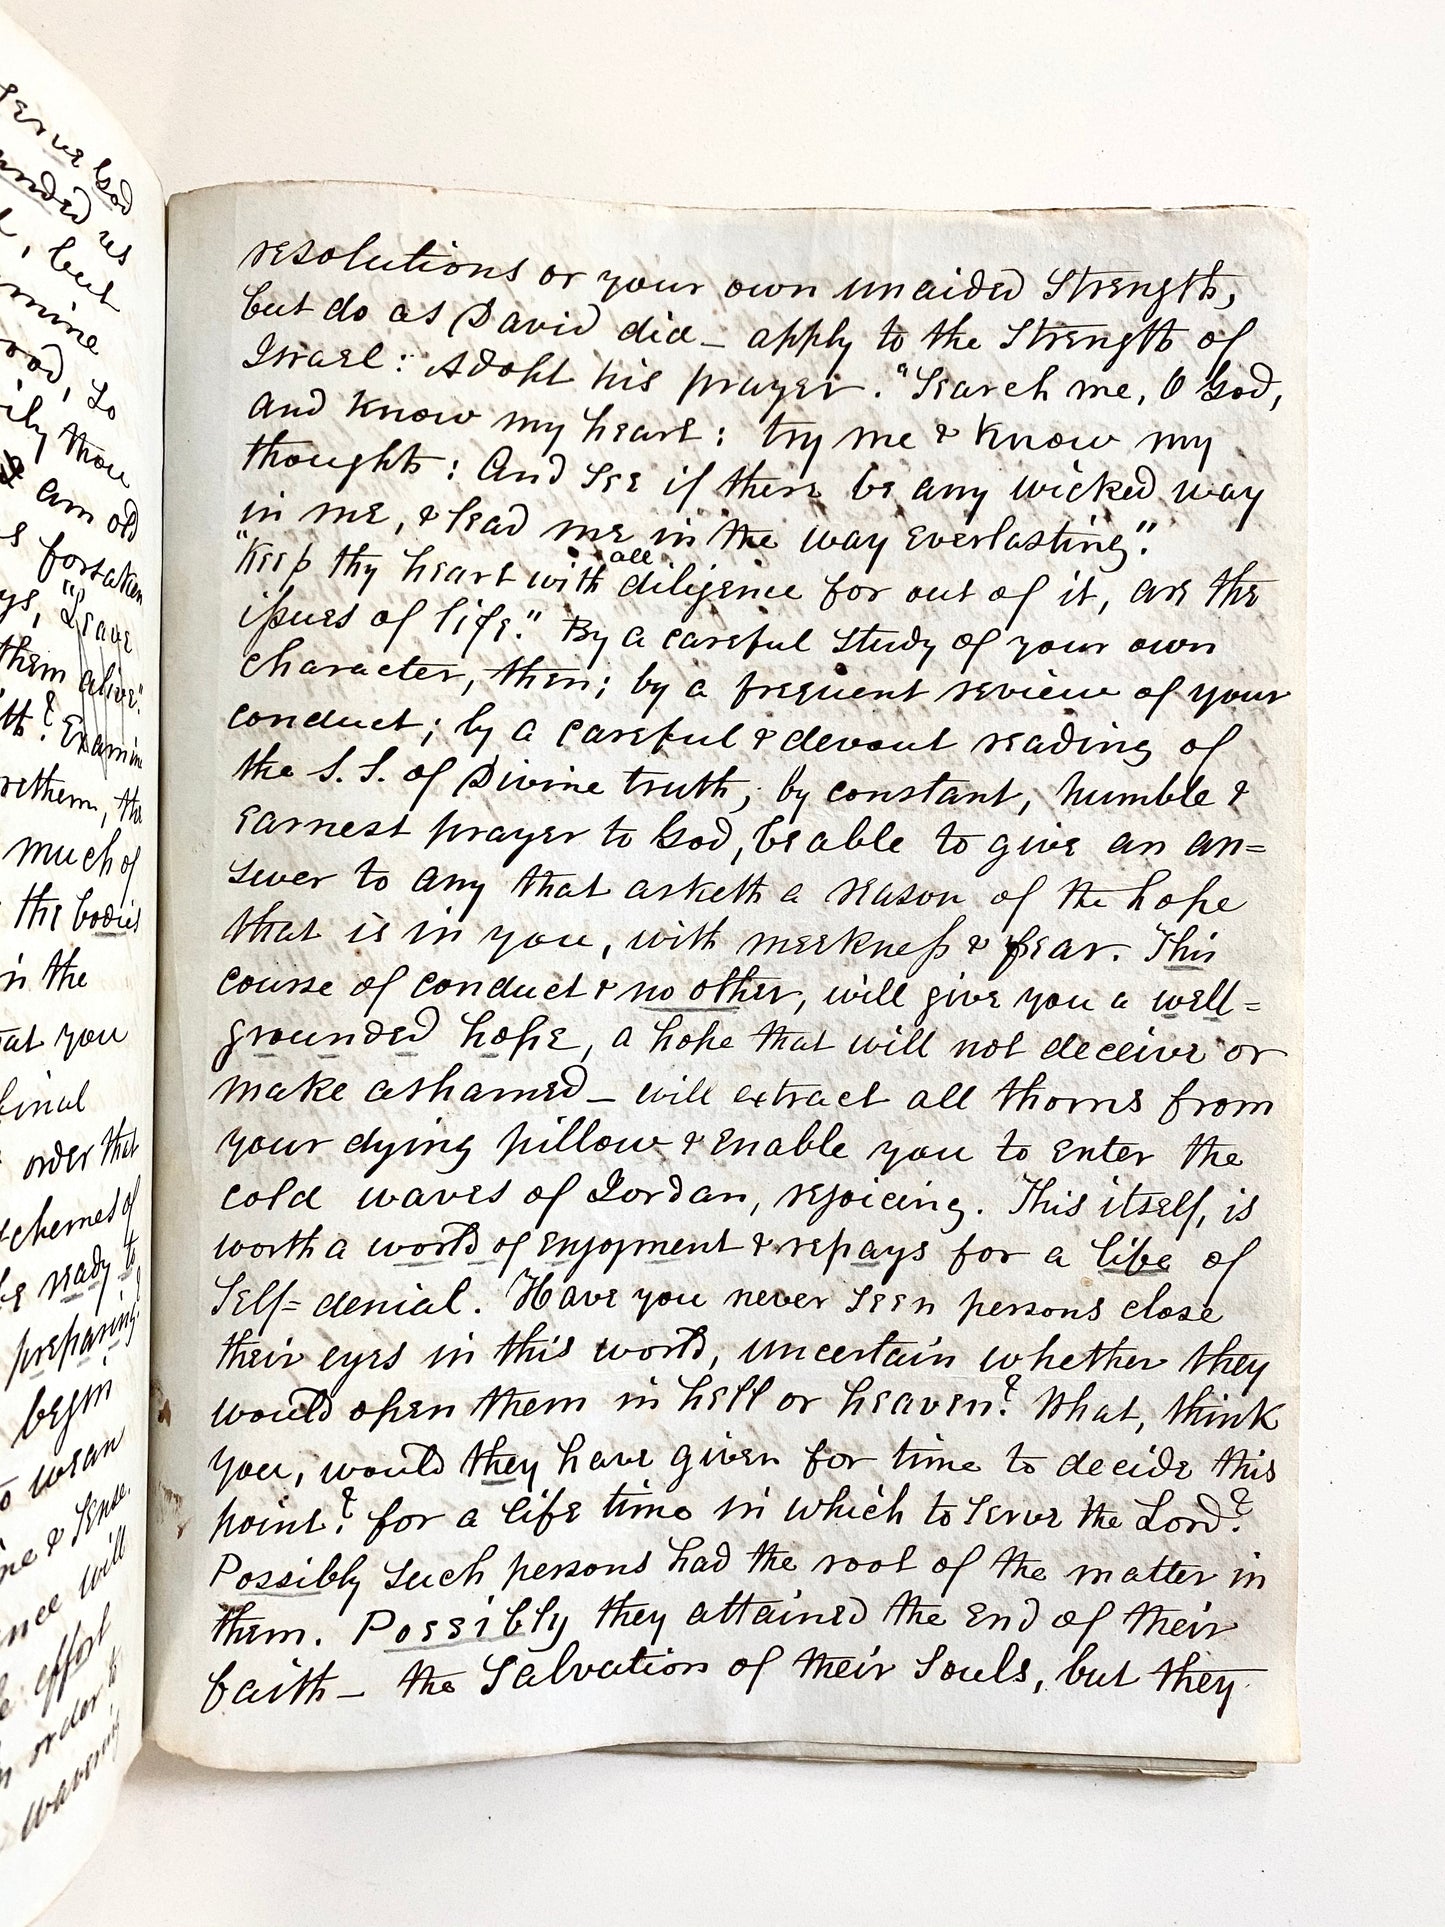 serve God
unded res
, but
mine
, so
ily thou
am old
forsaken
ys, "Leave
them alive."
th? Examine
, the
much of
the bodies
in the
at you
final
order that
schemes of
be ready to
preparing
begin
to wean
ne & sense.
ance will
effort
in order to
wavering
resolutions or your own unaided strength,
but do as David did – apply to the Strength of
Israel: Adopt his prayer. "Search me, O God,
and know my heart: try me & know my
thoughts: And see if there be any wicked way
in me, & lead me in the way everlasting."
"Keep thy heart with all diligence for out of it, are the
issues of life." By a careful study of your own
character, then; by a frequent review of your
conduct; by a careful & devout reading of
the S.S. of Divine truth; by constant, humble &
earnest prayer to God, be able to give an an=
swer to any that asketh a reason of the hope
that is in you, with meekness & fear. This
course of conduct & no other, will give you a well=
grounded hope, a hope that will not deceive or
make ashamed – will extract all thorns from
your dying pillow & enable you to enter the
cold waves of Jordan, rejoicing. This itself, is
worth a world of enjoyment & repays for a life of
self=denial. Have you never seen persons close
their eyes in this world, uncertain whether they
would open them in hell or heaven? What, think
you, would they have given for time to decide this
point? for a life time in which to serve the Lord?
Possibly such persons had the root of the matter in
them. Possibly they attained the end of their
faith – the Salvation of their souls, but they